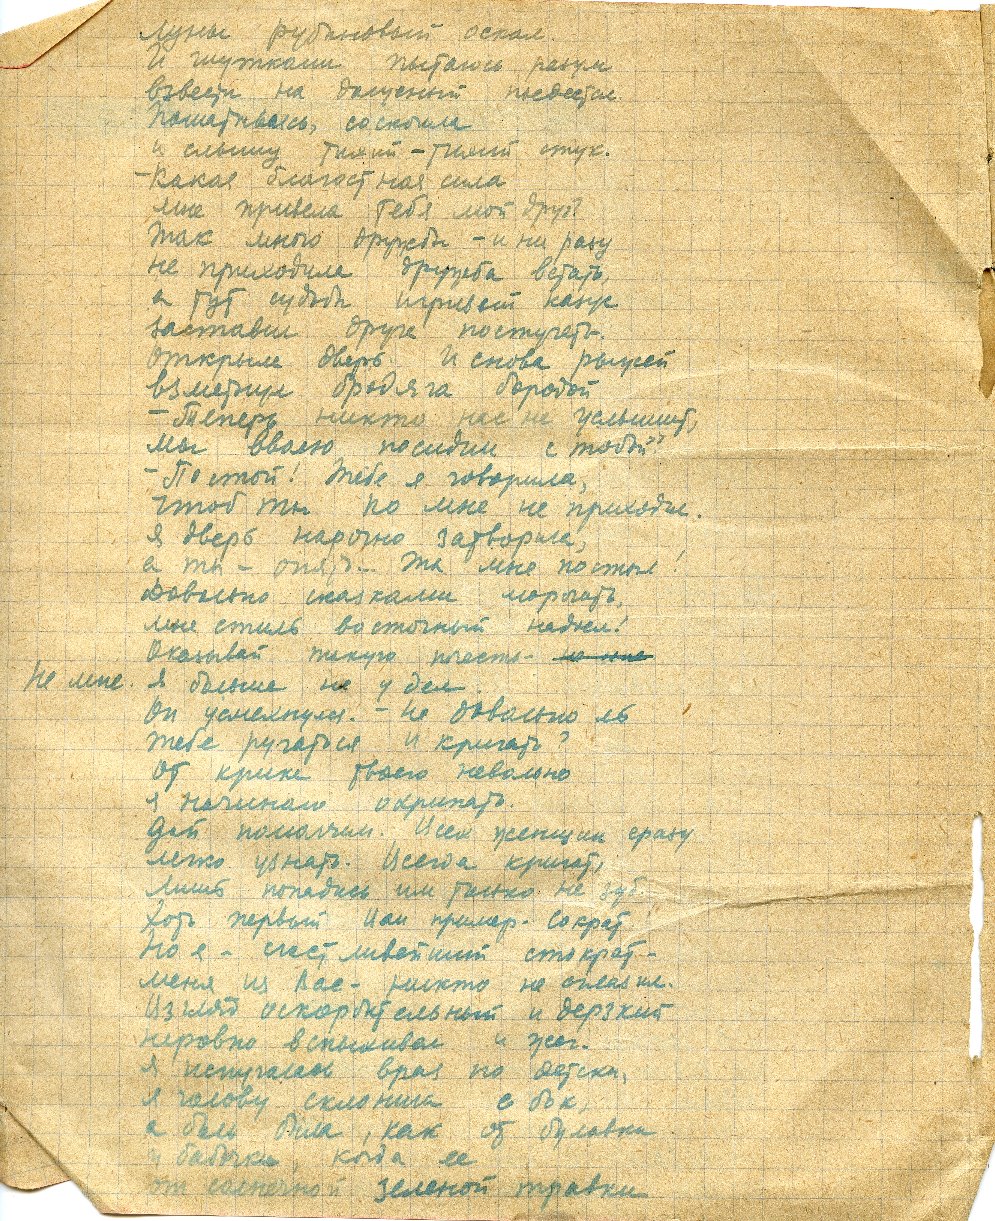 луны рубиновый оскал.
И шутками пытаюсь разум
взвести на досужный пьедестал
Пошатываясь, соскочила
и слышу тихий-тихий стук.
-Какая благостная сила
мне привела тебя мой друг?
Так много дружбы - и ни разу
не приходила дружба вспять,
а тут судьбы игривый казус
заставил друга постучать.
Открыла дверь. И снова рыжей
взметнул бродяга бородой
-Теперь никто нас не услышит,
мы вдвоем посидим с тобой"
-Постой! Тебе я говорила,
чтоб ты ко мне не приходил.
я дверь нарочно затворила,
а ты - опять.. Ты мне постыл!
Довольно сказками морочить,
мне стиль восточный надоел!
Оказывай такую почесть
Не мне. Я больше не у дел.
Он усмехнулся. - Не довольно ль
тебе ругаться и кричать?
От крика твоего невольно
я начинаю охрипать.
Дай помолчим. Всех женщин сразу
легко узнать. Всегда кричат,
лишь попадись им только на зуб.
Хоть первый вам пример - Сократ.
Но я - счастливейший стократ -
меня из вас - никто не оценил.
Взгляд оскорбительный и дерзкий
неровно вспыхивал и жег.
Я испугалась враз по детски,
я голову склонила в бок,
а боль была, как от булавки
у бабочки, когда ее
от солнечной зеленой травки